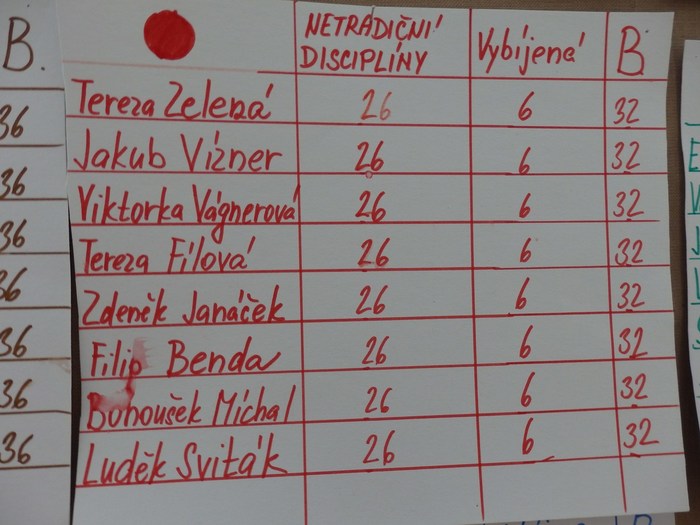 B.
NETRADIČNÍ DISCIPLÍNY Vybíjená B.
Tereza Zelená 26 6 32
36 Jakub Vízner 26 6 32
36 Viktorka Vágnerová 26 6 32
36 Tereza Fílová 26 6 32
36 Zdeněk Janáček 26 6 32
36 Filip Benda 26 6 32
36 Bohoušek Míchal 26 6 32
36 Luděk Sviták 26 6 32